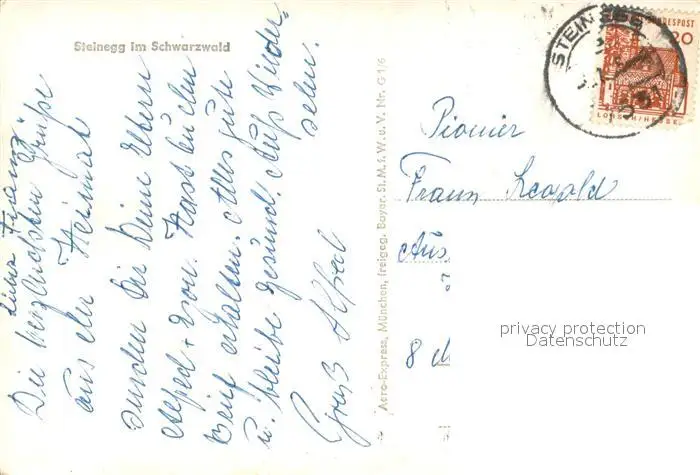 Steinegg im Schwarzwald
Lieber Franz
Die herzlichsten Grüße
aus der Heimat
senden Dir Deine Eltern
Alfred + Yvon. Hast du den
Brief erhalten. Alles gute
u. bleibe gesund. Auf Wieder=
sehn.
Gruß Alfred
Aero-Express, München, freigeg. Bayer. St. M. f. W. u. V. Nr. G 1/6
STEINEGG
BUNDESPOST
20
LORSCH/HESSEN
Pionier
Franz Leopold
Aus
8
privacy protection
Datenschutz